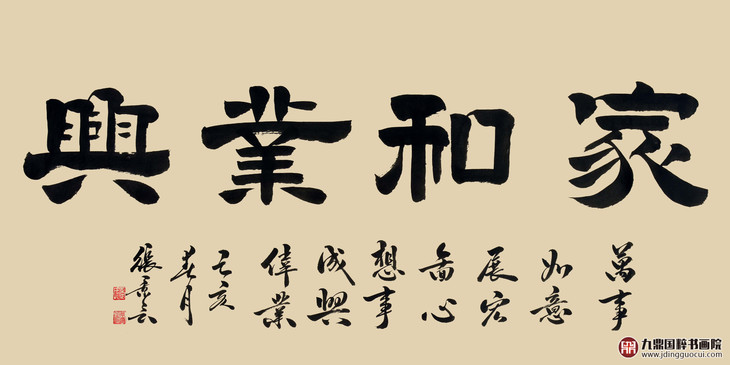 家和業興
萬事
如意
展宏
圖心
想事
成興
偉業
己亥
春月
張
九鼎国粹书画院
www.jdingguocui.com